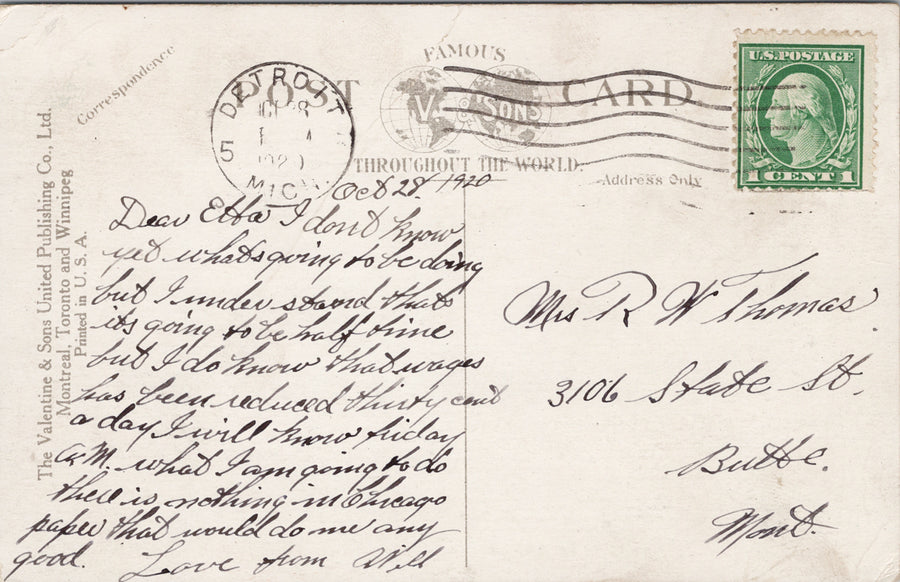 Correspondence
FAMOUS
POST CARD
V. & SONS
THROUGHOUT THE WORLD.
Address Only
U.S. POSTAGE
1 CENT 1
DETROIT
5
MICH.
The Valentine & Sons United Publishing Co., Ltd.
Montreal, Toronto and Winnipeg
Printed in U. S. A.
Oct 28. 1920
Dear Etta I dont know
yet whats going to be doing
but I under stand thats
its going to be half time
but I do know that wages
has been reduced thirty cent
a day I will know friday
a.M. what I am going to do
there is nothing in Chicago
paper that would do me any
good. Love from Will
Mrs R W Thomas
3106 State St.
Butte.
Mont.